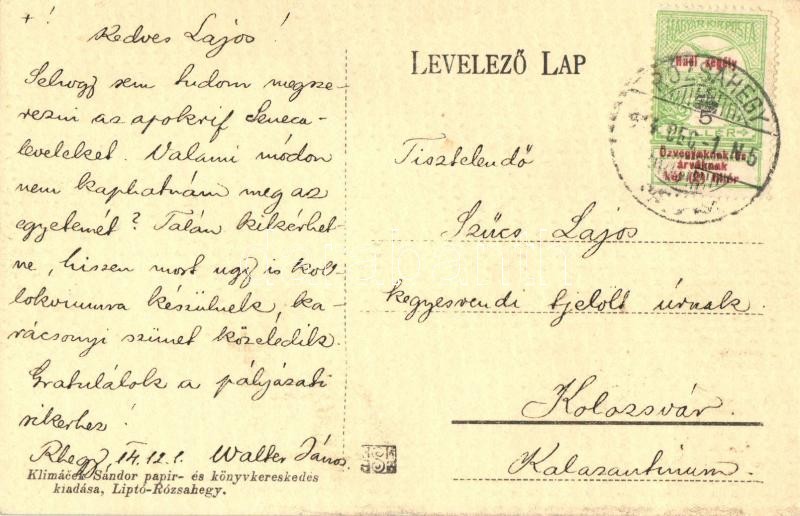 +!
Kedves Lajos!
Sehogy sem tudom megsze-
rezni az apokrif Seneca-
leveleket. Valami módon
nem kaphatnám meg az
egyetemét? Talán kikérhet-
ne, hiszen most ugy is kol-
lokviumra készülnek, ka-
rácsonyi szünet közeledik.
Gratulálok a pályázati
sikerhez!
Rhegy, 14.12.1. Walter János
Klimáček Sándor papir- és könyvkereskedes
kiadása, Liptó-Rózsahegy.
LEVELEZŐ LAP
Tisztelendő
Szücs Lajos
kegyesrendi tjelölt úrnak
Kolozsvár.
Kalazantinum.
MAGYAR KIR. POSTA
Hadi segély
5
FILLÉR
Özvegyeknek és
árváknak
két (2) fillér
RÓZSAHEGY
DEC -1 N5